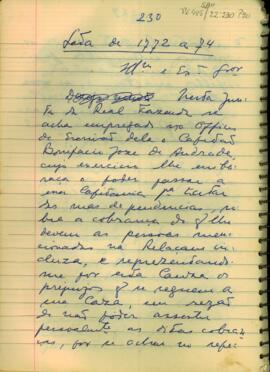 230
de 1772 a 74
Illm e Exm Snr
Nesta Jun-
ta da Real Fazenda se
acha empregado no Officio
de Escrivão dela o Capitão
Bonifacio José de Andrade,
cujo exercicio lhe emba-
raça o poder passar a
essa Capitania pa tratar
das suas dependencias so-
bre a cobrança do q lhe
devem as pessoas men-
cionadas na Relaçam in-
cluza, e reprezentando-
me por esta Cauza os
prejuizos q se seguem a
sua Caza, em rezão
de não poder assistir
pessoalmte as ditas cobran-
ças, por se achar no refe-